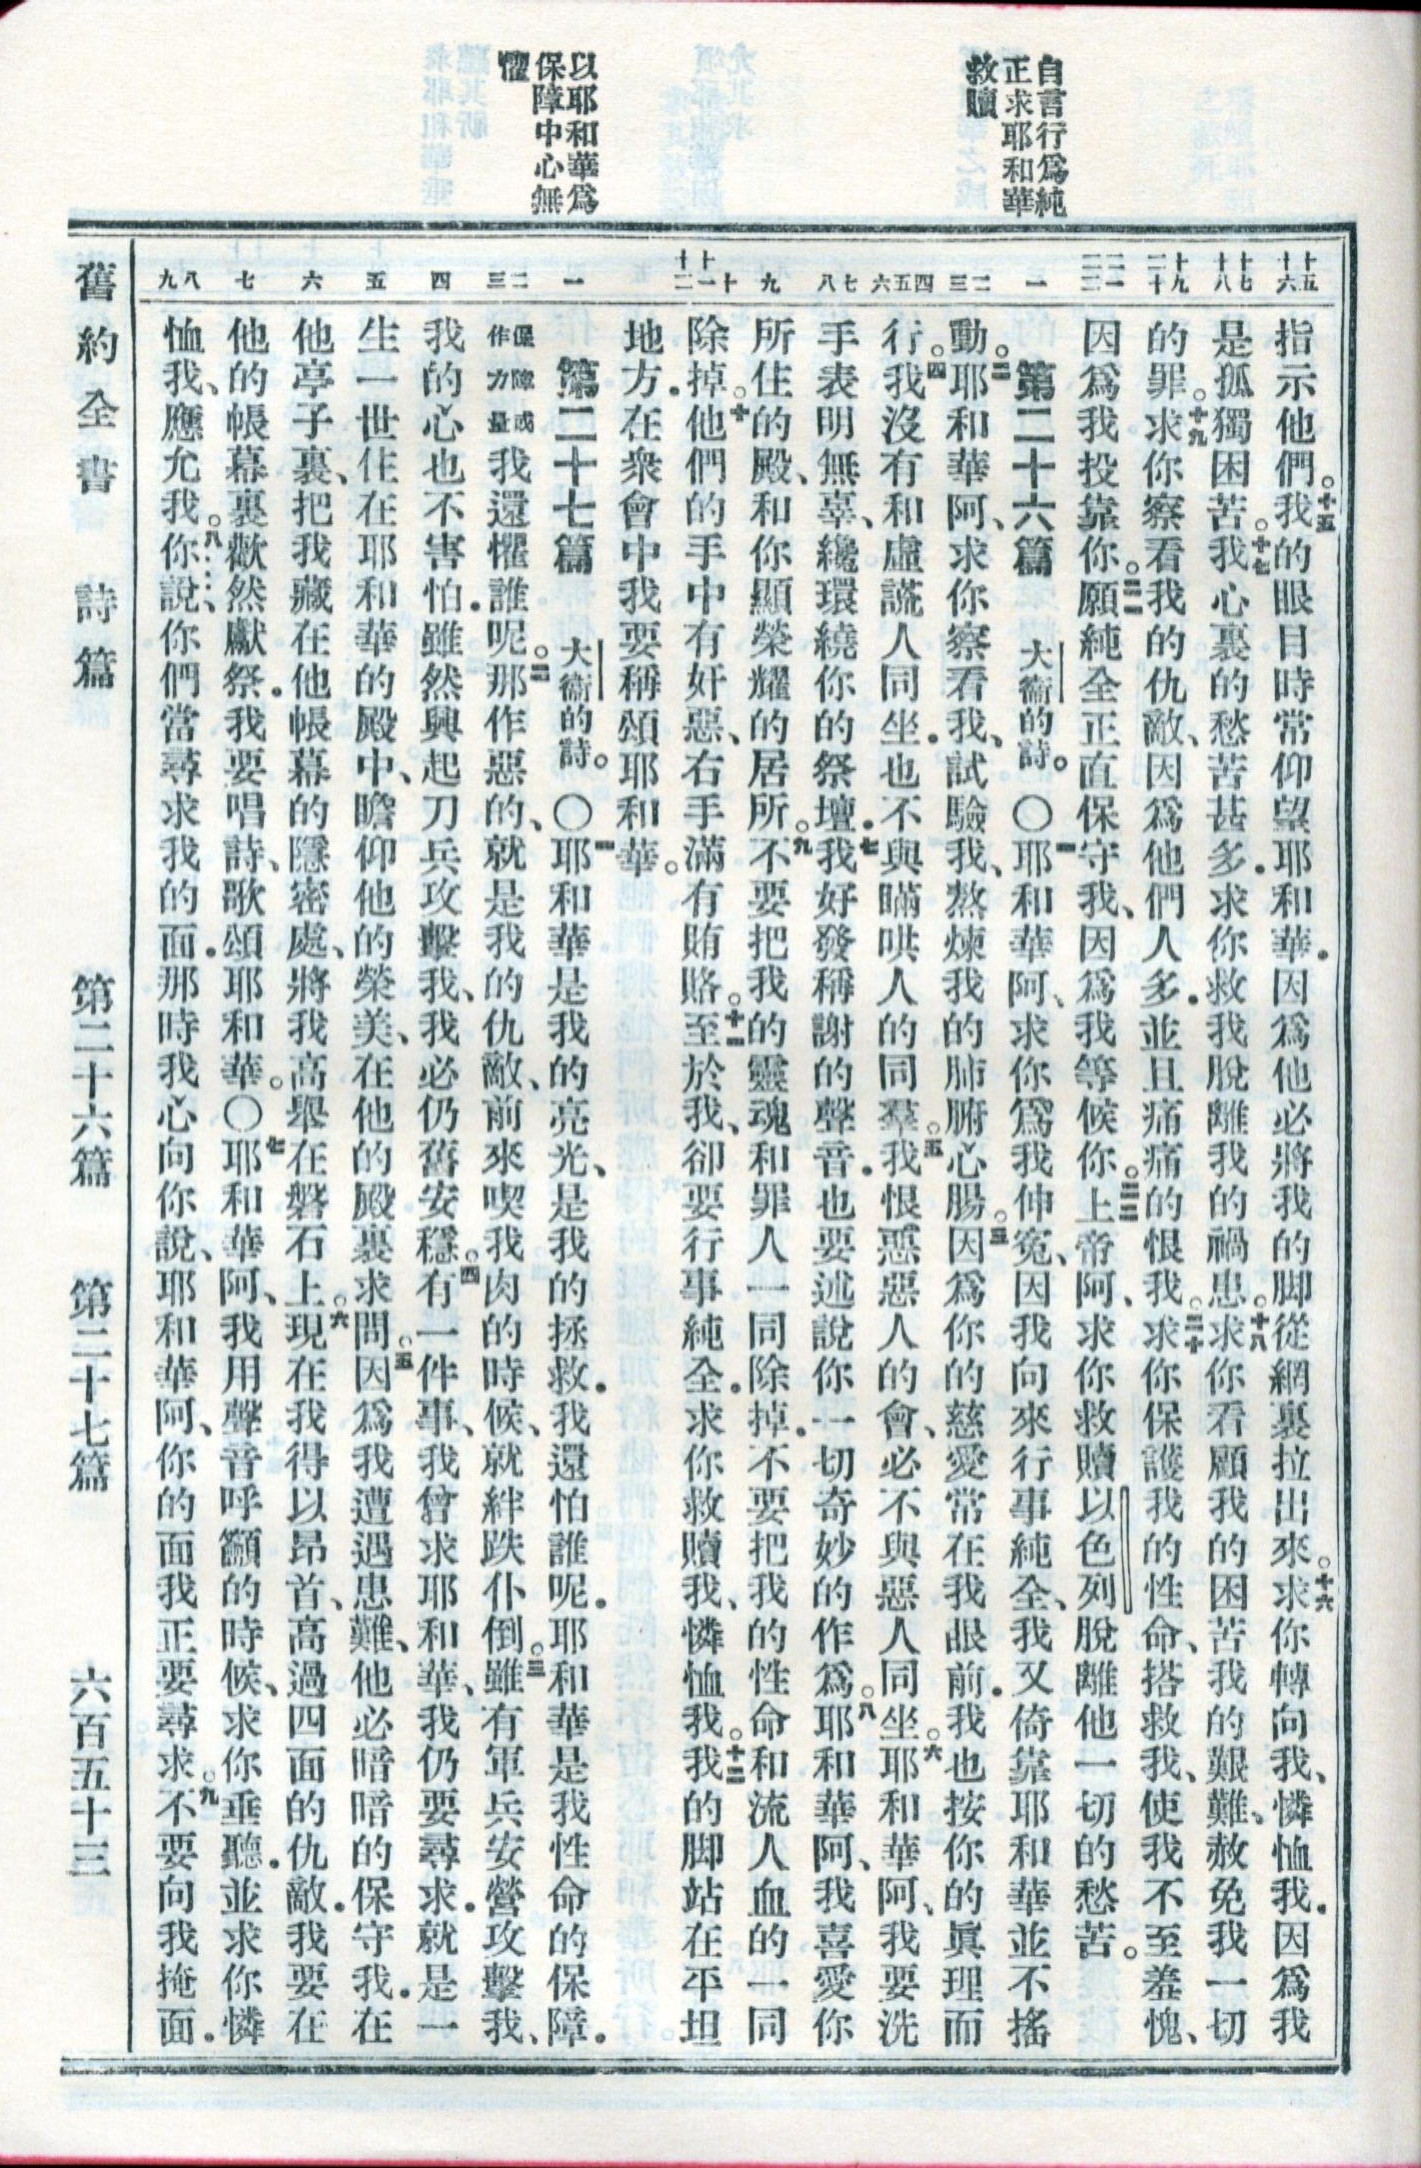 自言行爲純
正求耶和華
救贖
以耶和華爲
保障中心無
懼
十五 十六
十七 十八
十九 二十
二一 二二
一
二 三
四 五 六
七 八
九
十 十一 十二
一
二 三
四
五
六
七
八 九
指示他們。十五我的眼目時常仰望耶和華．因爲他必將我的脚從網裏拉出來。十六求你轉向我、憐恤我．因爲我
是孤獨困苦。十七我心裏的愁苦甚多．求你救我脫離我的禍患。十八求你看顧我的困苦我的艱難、赦免我一切
的罪。十九求你察看我的仇敵、因爲他們人多．並且痛痛的恨我。二十求你保護我的性命、搭救我、使我不至羞愧、
因爲我投靠你。二一願純全正直保守我、因爲我等候你。二二上帝阿、求你救贖以色列脫離他一切的愁苦。
第二十六篇 大衞的詩。〇一耶和華阿、求你爲我伸冤、因我向來行事純全、我又倚靠耶和華並不搖
動。二耶和華阿、求你察看我、試驗我、熬煉我的肺腑心腸。三因爲你的慈愛常在我眼前．我也按你的眞理而
行。四我沒有和虛謊人同坐．也不與瞞哄人的同羣。五我恨惡惡人的會、必不與惡人同坐。六耶和華阿、我要洗
手表明無辜、纔環繞你的祭壇．七我好發稱謝的聲音．也要述說你一切奇妙的作爲。八耶和華阿、我喜愛你
所住的殿、和你顯榮耀的居所。九不要把我的靈魂和罪人一同除掉．不要把我的性命和流人血的一同
除掉。十他們的手中有奸惡、右手滿有賄賂。十一至於我、卻要行事純全．求你救贖我、憐恤我。十二我的脚站在平坦
地方．在衆會中我要稱頌耶和華。
第二十七篇 大衞的詩。〇一耶和華是我的亮光、是我的拯救．我還怕誰呢．耶和華是我性命的保障．
保障或作力量我還懼誰呢。二那作惡的、就是我的仇敵、前來喫我肉的時候、就絆跌仆倒。三雖有軍兵安營攻擊我、
我的心也不害怕．雖然興起刀兵攻擊我、我必仍舊安穩。四有一件事、我曾求耶和華、我仍要尋求．就是一
生一世住在耶和華的殿中、瞻仰他的榮美、在他的殿裏求問。五因爲我遭遇患難、他必暗暗的保守我．在
他亭子裏、把我藏在他帳幕的隱密處、將我高舉在磐石上。六現在我得以昂首、高過四面的仇敵．我要在
他的帳幕裏歡然獻祭．我要唱詩、歌頌耶和華。〇七耶和華阿、我用聲音呼籲的時候、求你垂聽．並求你憐
恤我、應允我。八你說、你們當尋求我的面．那時我心向你說、耶和華阿、你的面我正要尋求。九不要向我掩面．
舊約全書 詩篇 第二十六篇 第二十七篇 六百五十三